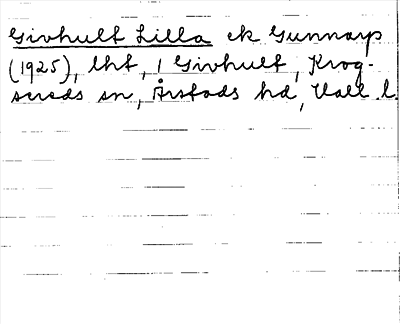 Givhult Lilla ek Gunnarp
(1925), lht, 1 Givhult, Krog-
sereds sn, Årstads hd, Hall. l.